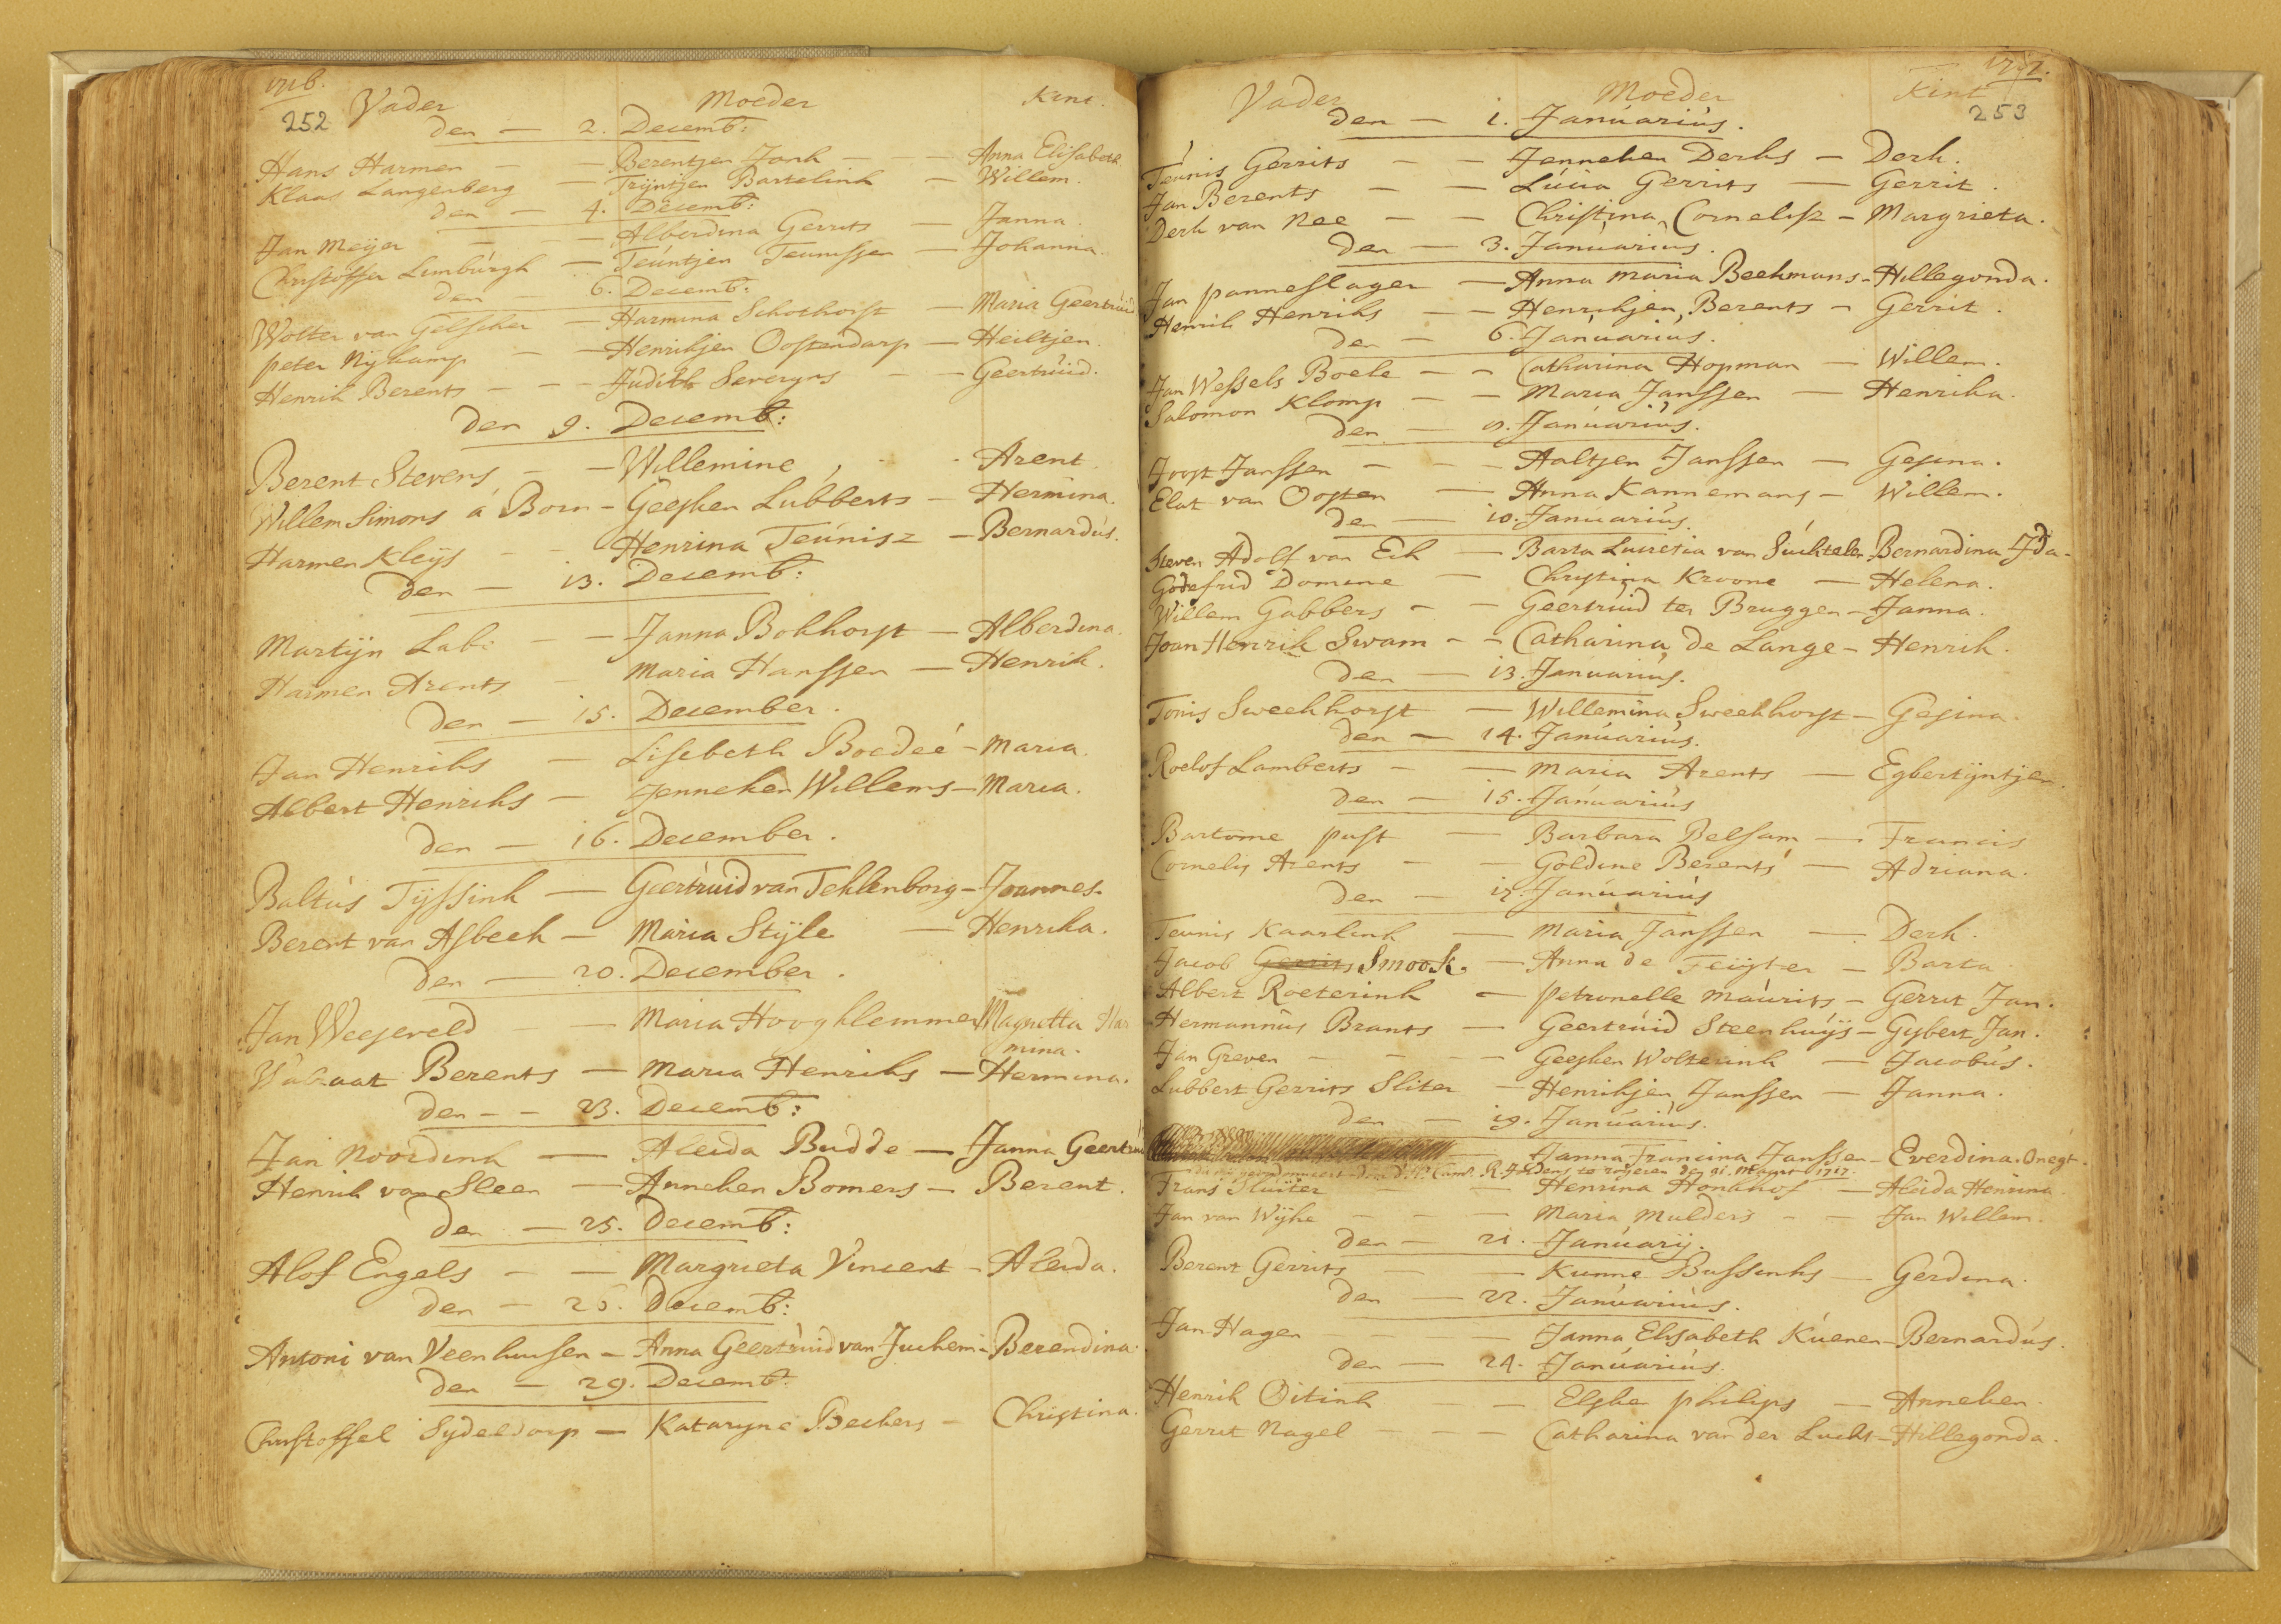 1716.
252 Vader Moeder Kint.
den — 2. Decemb:
Hans Harmen — — Berentjen Jonk — — Anna Elisabeth
Klaas Langenberg — Trijntjen Bartelink — Willem.
den — 4. Decemb:
Jan Meijer — — Alberdina Gerrits — Janna.
Christoffer Limburgh — Teuntjen Teunissen — Johanna.
den — 6. Decemb:
Wolter van Gelscher — Harmina Schothorst — Maria Geertruid
peter Nijkamp — — Henrikjen Oostendarp — Heiltjen.
Henrik Berents — — — Judith Severyns — — Geertruid.
den 9. Decemb:
Berent Stevens — — Willemine Arent.
Willem Simons á Born — Geesken Lubberts — Hermina.
Harmen Kleijs — — Henrina Teunisz — Bernardus.
den — 13. Decemb:
Martijn Labe — — Janna Bokhorst — Alberdina.
Harmen Arents — Maria Hanssen — Henrik.
den — 15. December.
Jan Henriks — Lisebeth Boedeé — Maria.
Albert Henriks — Jenneken Willems — Maria.
den — 16. December.
Baltus Tijssink — Geertruid van Teklenborg — Joannes.
Berent van Asbeek — Maria Stijle — Henrika.
den — 20. December.
Jan Weegeveld — Maria Hooghlemmer Magnetta Har
mina.
Berents — Maria Henriks — Hermina.
den — — 23. Decemb:
Jan Noordink — Aleida Budde — Janna Geertruid
Henrik van Sleen — Anneken Bomers — Berent.
den — 25. Decemb:
Alof Engels — — Margrieta Vincent — Aleida.
den — 26. Decemb:
Antoni van Veenhuisen — Anna Geertruid van Juchem — Berendina.
den — 29. Decemb:
Christoffel Sydeldorp — Kataryne Beckers — Christina.
1717.
Vader Moeder Kint 253
den — 1. Januarius.
Teunis Gerrits — — Jenneken Derks — Derk.
Jan Berents — — Lucia Gerrits — Gerrit.
Derk van Nee — — Christina Cornelisz — Margrieta.
den — 3. Januarius.
Jan panneslager — Anna Maria Beekmans — Hillegonda.
Henrik Henriks — — Henrikjen Berents — Gerrit.
den — 6. Januarius.
Jan Wessels Boele — — Catharina Hopman — Willem.
Salomon Klomp — — Maria Janssen — Henrika.
den — 9. Januarius.
Joost Janssen — — — Aaltjen Janssen — Gesina.
Elat van Oosten — Anna Kannemans — Willem.
den — 10. Januarius.
Steven Adolf van Eck — Barta Lucretia van Suchtelen Bernardina Ida.
Godefrid Domine — Christina Kroone — Helena.
Willem Gabbers — — Geertruid ter Bruggen — Janna.
Joan Henrik Swam — — Catharina de Lange — Henrik.
den — 13. Januarius.
Tonis Sweekhorst — Willemina Sweekhorst — Gesina.
den — 14. Januarius.
Roelof Lamberts — — Maria Arents — Egbertijntjen.
den — 15. Januarius
Bartome pust — Barbara Belsam — Francis
Cornelis Arents — — Goldine Berents — Adriana.
den — 17. Januarius
Teunis Kaarlink — Maria Janssen — Derk.
Jacob Gerrits Smook. — Anna de Feijter — Barta.
Albert Roeterink — Petronelle Maurits — Gerrit Jan.
Hermannus Brants — Geertruid Steenhuijs — Gijbert Jan.
Jan Greven — — — Geesken Wolterink — Jacobus.
Lubbert Gerrits Sliter — Henrikjen Janssen — Janna.
den — 19. Januarius.
Janna Francina Janssen — Everdina. Onegt.
te royeren den 1717.
Frans Sluiter — — Henrina Honkhof — Aleida Henrina.
Jan van Wijhe — — — Maria Mulders — — Jan Willem.
den — 21. Januarij.
Berent Gerrits — — Kunne Bussinks — Gerdina.
den — 22. Januarius.
Jan Hagen — — Janna Elisabeth Kuenen — Bernardus.
den — 24. Januarius.
Henrik Oitink — — Elske philips — Anneken.
Gerrit Nagel — — — Catharina van der Lucht — Hillegonda.